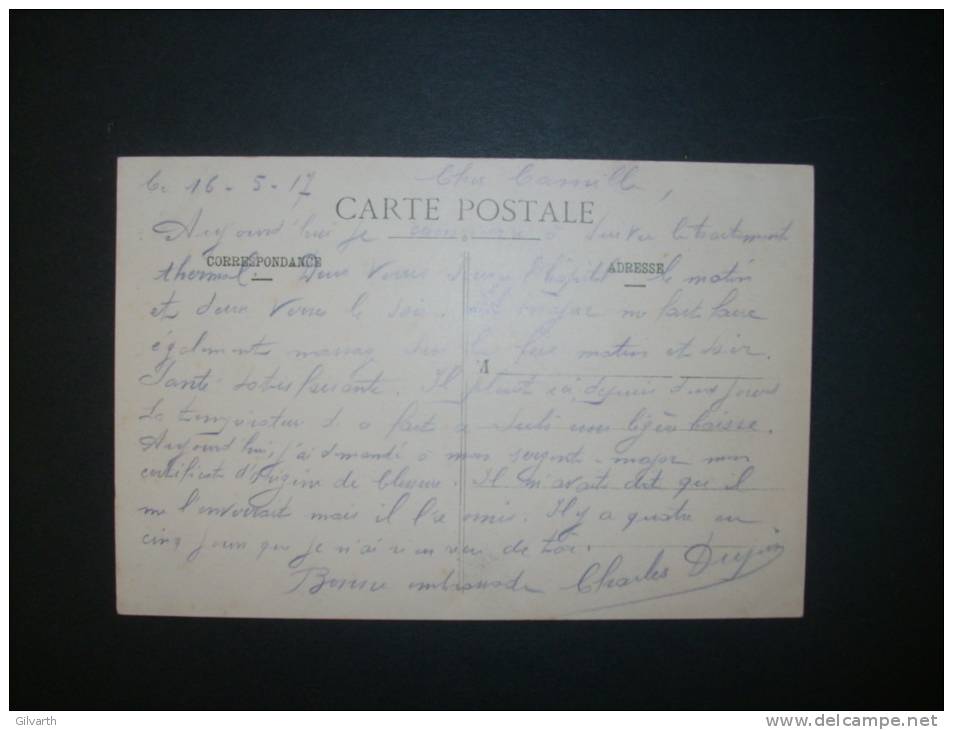 Le 16 - 5 - 17 Cher Camille,
CARTE POSTALE
Aujourd'hui je commence à suivre le traitement
CORRESPONDANCE
ADRESSE
thermal. Deux verres l'hôpital le matin
et deux verres le soir. major me fait faire
également massage sur le matin et soir.
M
Santé satisfaisante. Il pleut ici depuis deux jours
La température a fait a subi une légère baisse.
Aujourd'hui, j'ai demandé à mon sergent-major mon
certificat d'origine de blessure. Il m'avait dit qu'il
me l'enverrait mais il l'a omis. Il y a quatre ou
cinq jours que je n'ai rien reçu de toi.
Bonne embrassade Charles
Gilvarth
www.delcampe.net